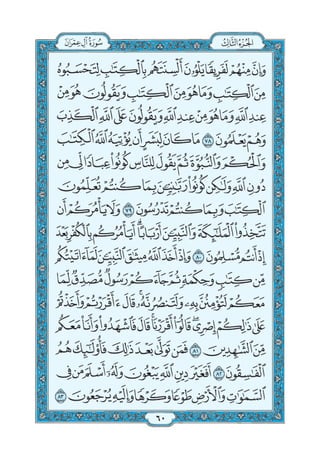 سُورَةُ آلِ عِمْرَانَ الجُزْءُ الثَّالِثُ
وَإِنَّ مِنْهُمْ لَفَرِيقًا يَلْوُۥنَ أَلْسِنَتَهُم بِٱلْكِتَٰبِ لِتَحْسَبُوهُ
مِنَ ٱلْكِتَٰبِ وَمَا هُوَ مِنَ ٱلْكِتَٰبِ وَيَقُولُونَ هُوَ مِنْ
عِندِ ٱللَّهِ وَمَا هُوَ مِنْ عِندِ ٱللَّهِ وَيَقُولُونَ عَلَى ٱللَّهِ ٱلْكَذِبَ
وَهُمْ يَعْلَمُونَ ٧٨ مَا كَانَ لِبَشَرٍ أَن يُؤْتِيَهُ ٱللَّهُ ٱلْكِتَٰبَ
وَٱلْحُكْمَ وَٱلنُّبُوَّةَ ثُمَّ يَقُولَ لِلنَّاسِ كُونُوا۟ عِبَادًا لِّى مِن
دُونِ ٱللَّهِ وَلَٰكِن كُونُوا۟ رَبَّٰنِيِّۦنَ بِمَا كُنتُمْ تُعَلِّمُونَ
ٱلْكِتَٰبَ وَبِمَا كُنتُمْ تَدْرُسُونَ ٧٩ وَلَا يَأْمُرَكُمْ أَن
تَتَّخِذُوا۟ ٱلْمَلَٰٓئِكَةَ وَٱلنَّبِيِّۦنَ أَرْبَابًا أَيَأْمُرُكُم بِٱلْكُفْرِ بَعْدَ
إِذْ أَنتُم مُّسْلِمُونَ ٨٠ وَإِذْ أَخَذَ ٱللَّهُ مِيثَٰقَ ٱلنَّبِيِّۦنَ لَمَآ ءَاتَيْتُكُم
مِّن كِتَٰبٍ وَحِكْمَةٍ ثُمَّ جَآءَكُمْ رَسُولٌ مُّصَدِّقٌ لِّمَا
مَعَكُمْ لَتُؤْمِنُنَّ بِهِۦ وَلَتَنصُرُنَّهُۥ قَالَ ءَأَقْرَرْتُمْ وَأَخَذْتُمْ
عَلَىٰ ذَٰلِكُمْ إِصْرِى قَالُوٓا۟ أَقْرَرْنَا قَالَ فَٱشْهَدُوا۟ وَأَنَا۠ مَعَكُم
مِّنَ ٱلشَّٰهِدِينَ ٨١ فَمَن تَوَلَّىٰ بَعْدَ ذَٰلِكَ فَأُو۟لَٰٓئِكَ هُمُ
ٱلْفَٰسِقُونَ ٨٢ أَفَغَيْرَ دِينِ ٱللَّهِ يَبْغُونَ وَلَهُۥٓ أَسْلَمَ مَن فِى
ٱلسَّمَٰوَٰتِ وَٱلْأَرْضِ طَوْعًا وَكَرْهًا وَإِلَيْهِ يُرْجَعُونَ ٨٣
٦٠